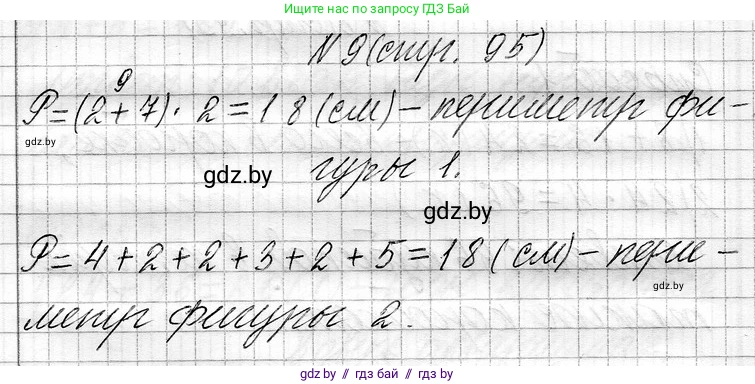 Ищите нас по запросу ГДЗ Бай
N 9 (стр. 95)
9
P = (2 + 7) · 2 = 18 (см) – периметр фи-
gdz.by
gdz.by
гуры 1.
gdz.by
P = 4 + 2 + 2 + 3 + 2 + 5 = 18 (см) – пери-
gdz.by
метр фигуры 2.
gdz.by // гдз бай // gdz.by